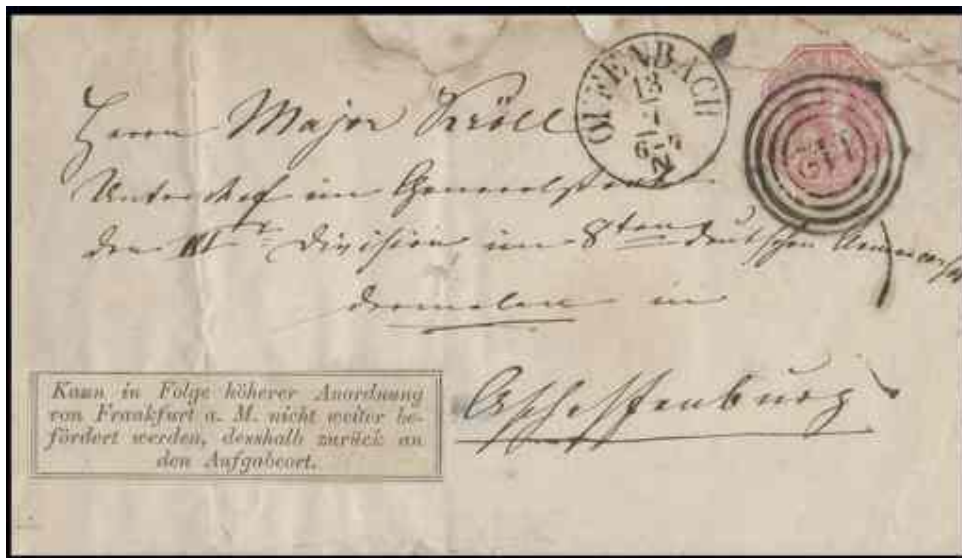 OFFENBACH
13
7
6-7
N
Herrn Major Kröll
Unterchef im Generalstab
der Division im 8ten deutschen
dermalen in
Aschaffenburg
Kann in Folge höherer Anordnung
von Frankfurt a. M. nicht weiter be-
fördert werden, desshalb zurück an
den Aufgabeort.